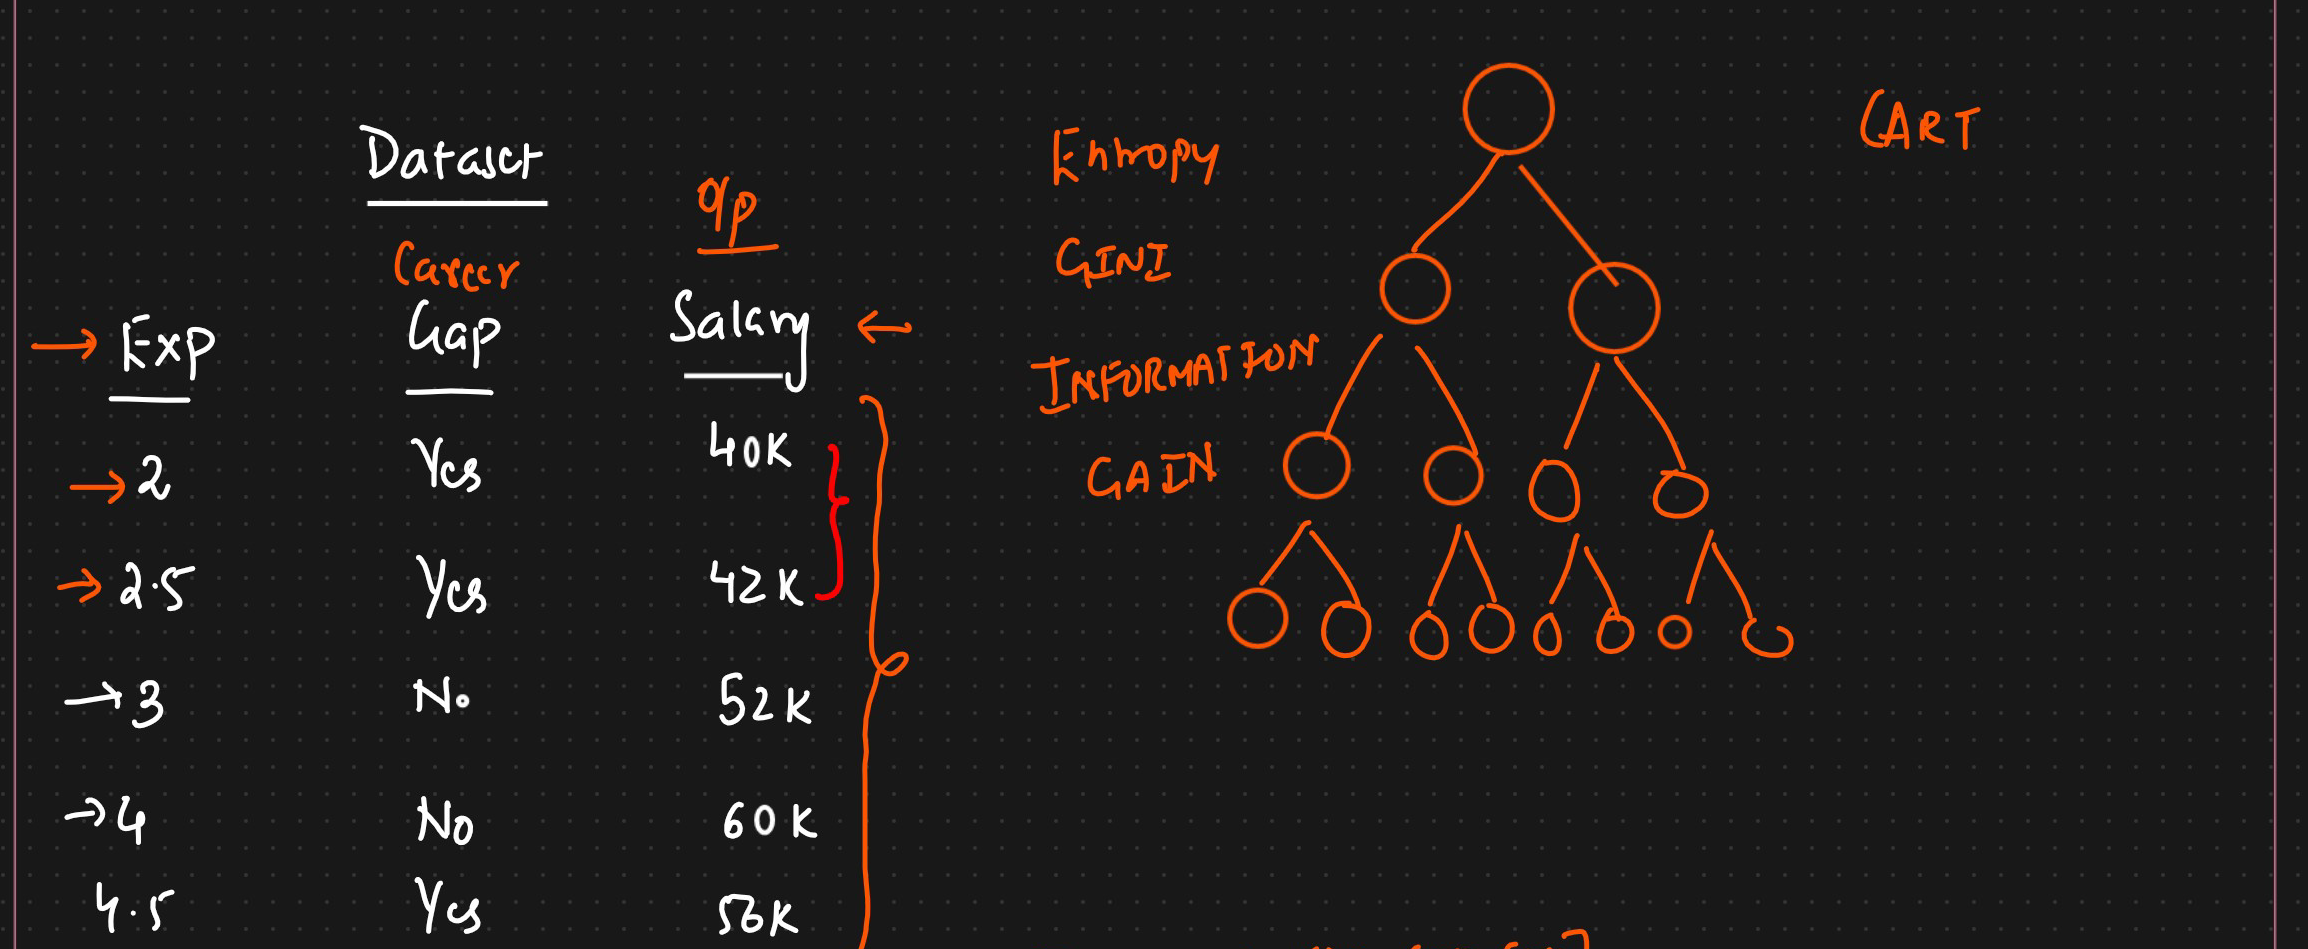 Dataset
o/p
Career
→ Exp Gap Salary ←
→ 2 Yes 40K
→ 2.5 Yes 42K
→ 3 No 52K
→ 4 No 60K
4.5 Yes 56K
Entropy
GINI
INFORMATION
GAIN
CART